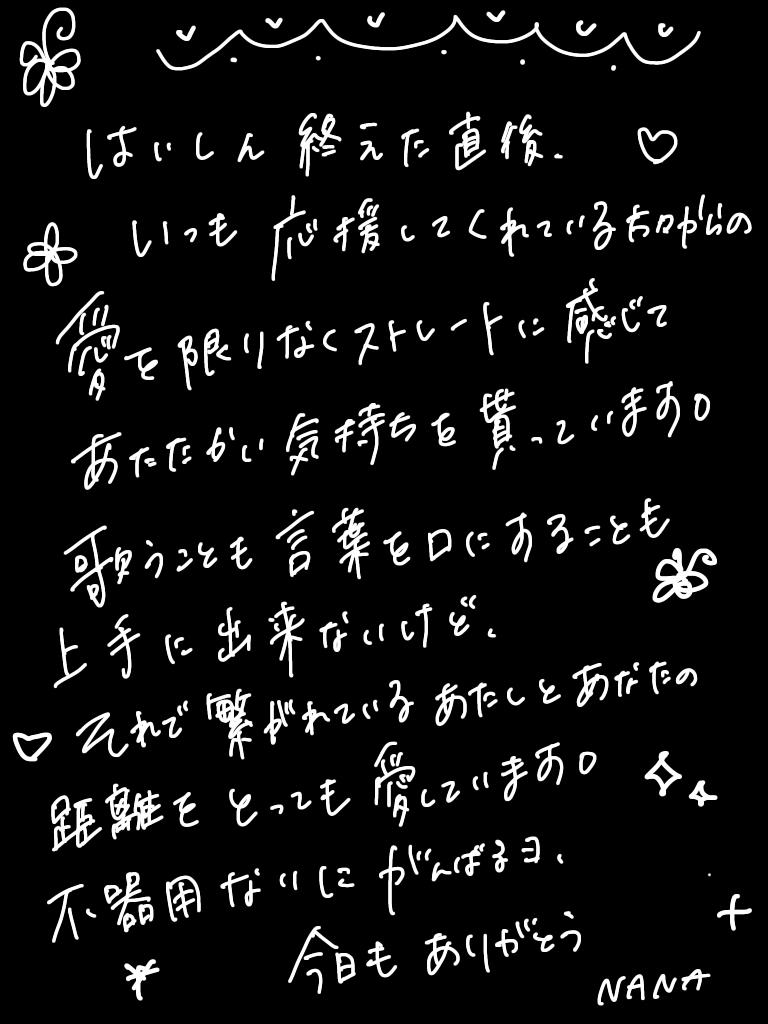 はいしん終えた直後、
いつも応援してくれている方々からの
愛を限りなくストレートに感じて
あたたかい気持ちを貰っています。
歌うことも言葉を口にすることも
上手に出来ないけど、
それで繋がれているあたしとあなたの
距離をとっても愛しています。
不器用ないにがんばるヨ、
今日もありがとう
NANA